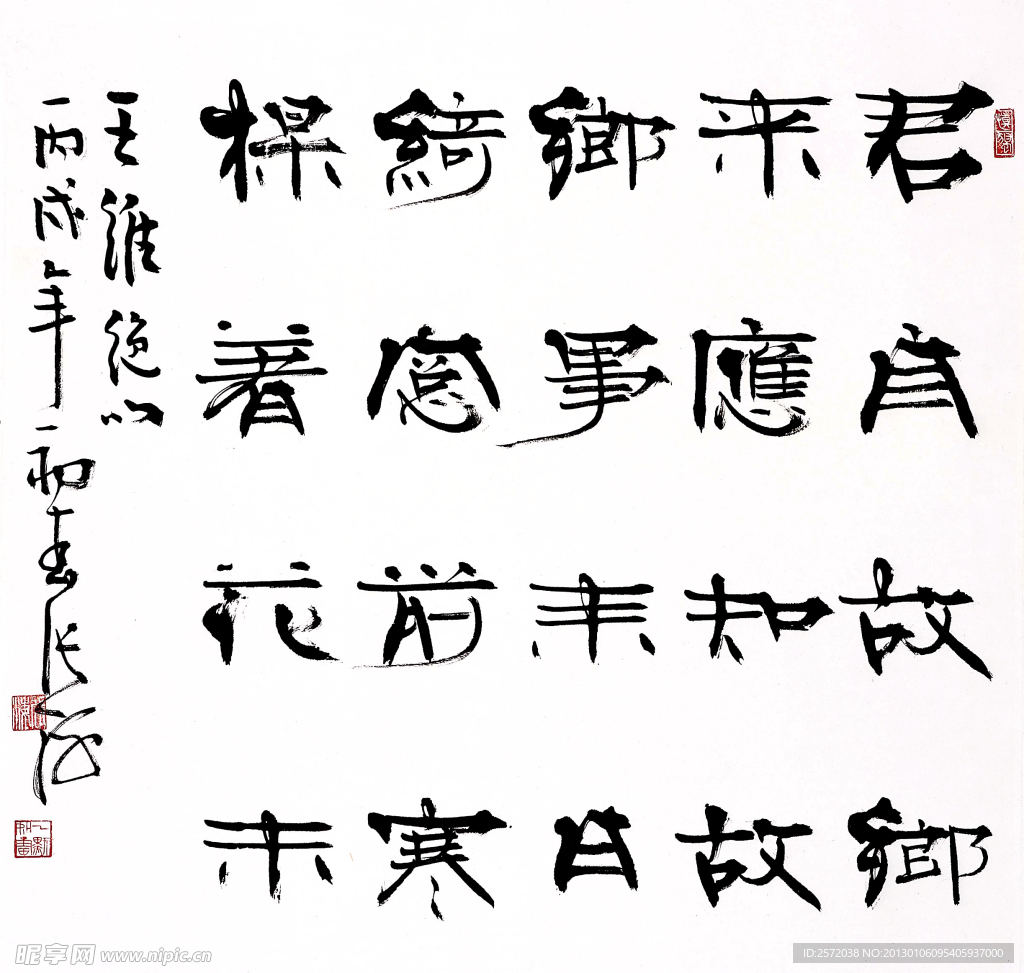 君自故鄉
来應知故
鄉事来日
綺窓前寒
楳著花未
王維絶句
丙戌年初春张海
昵享网 www.nipic.cn
ID:2572038 NO:20130106095405937000